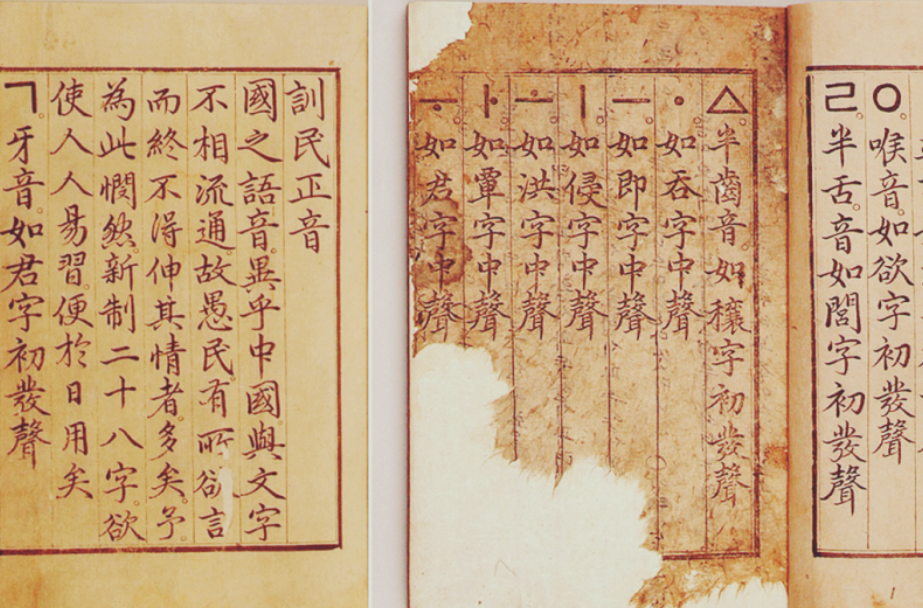 訓民正音
國之語音。異乎中國。與文字
不相流通。故愚民。有所欲言
而終不得伸其情者。多矣。予。
為此憫然。新制二十八字。欲
使人人易習。便於日用矣
ㄱ。牙音。如君字初發聲
ㅇ。喉音。如欲字初發聲
ㄹ。半舌音。如閭字初發聲
ㅿ。半齒音。如穰字初發聲
ㆍ。如吞字中聲
ㅡ。如即字中聲
ㅣ。如侵字中聲
ㅗ。如洪字中聲
ㅏ。如覃字中聲
ㅜ。如君字中聲